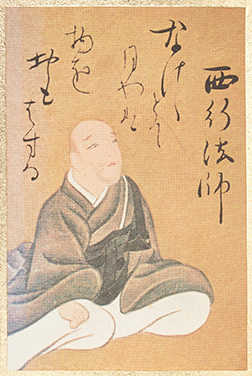 西行法師
なけゝとて
月やは
物を
おもはする